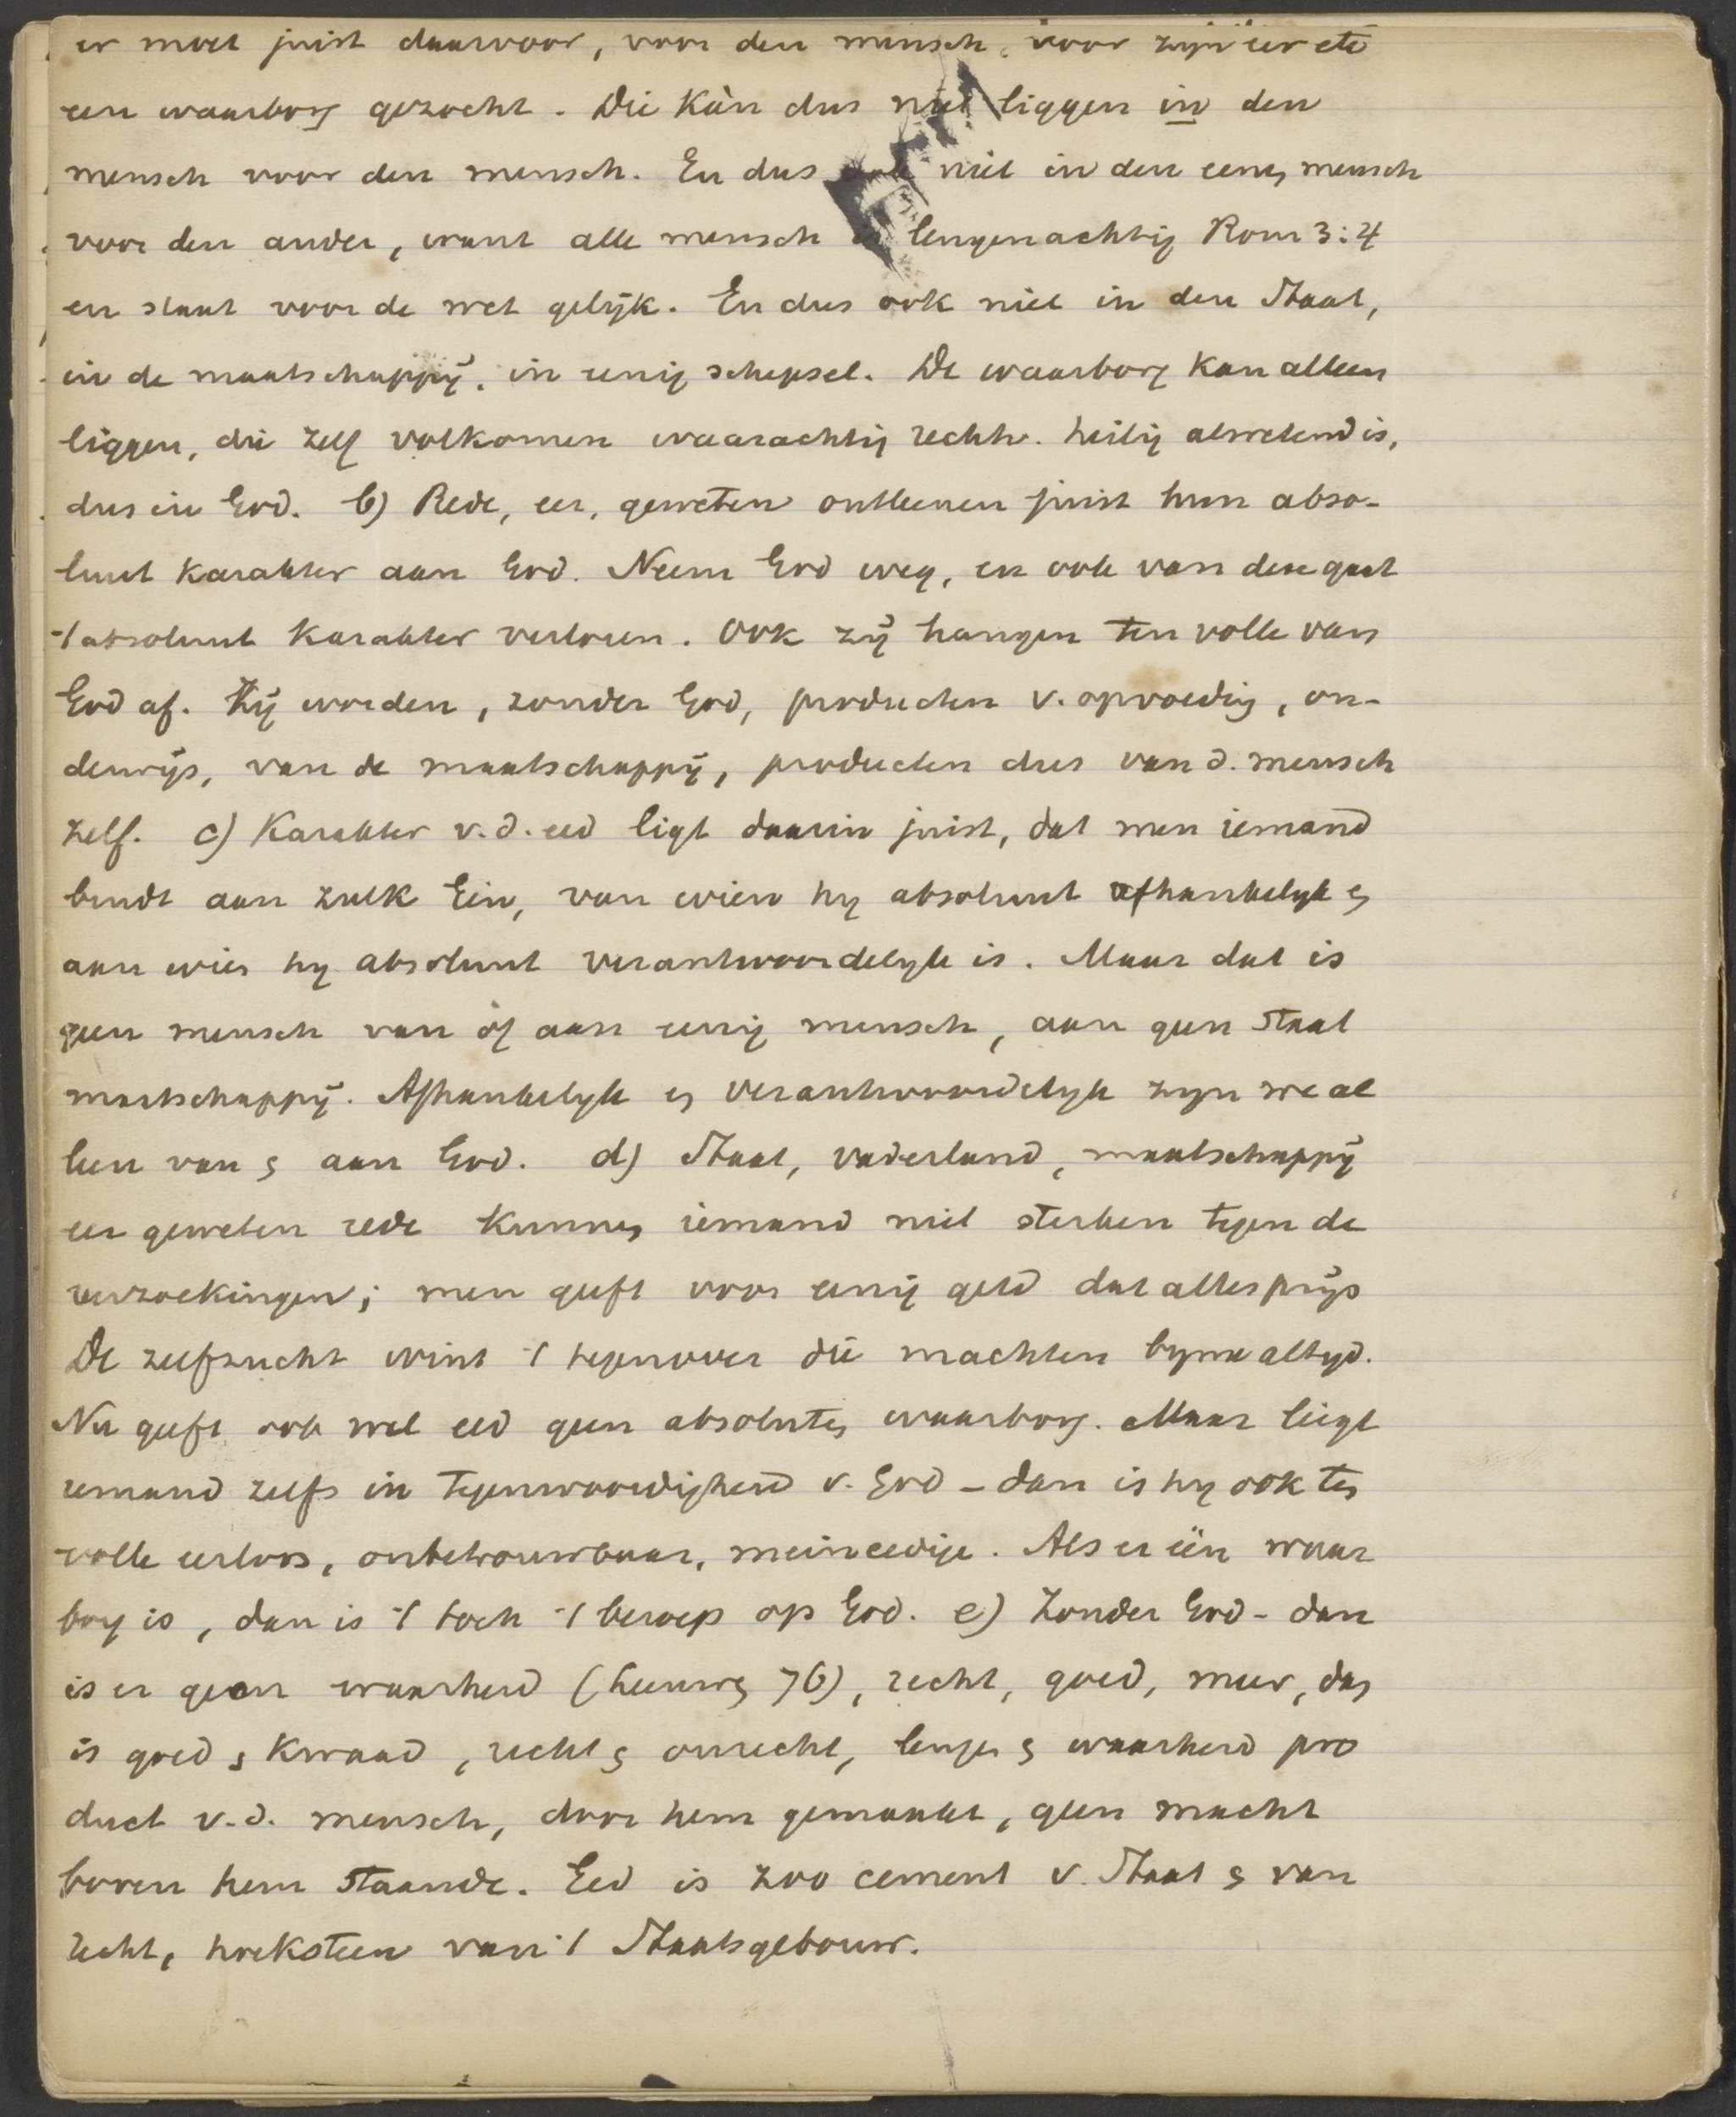 er moet juist daarvoor, voor den mensch, voor zijn eer etc
een waarborg gezocht. Die kàn dus niet liggen in den
mensch voor den mensch. En dus ook niet in den eenen mensch
voor den ander, want alle mensch is leugenachtig Rom 3:4
en staat voor de wet gelijk. En dus ook niet in den Staat,
in de maatschappij, in eenig schepsel. De waarborg kan alleen
liggen, die zelf volkomen waarachtig rechtv. heilig alwetend is,
dus in God. b) Rede, eer, geweten ontleenen juist hun abso-
luut karakter aan God. Neem God weg, en ook van deze gaat
't absoluut karakter verloren. Ook zij hangen ten volle van
God af. Zij worden, zonder God, producten v. opvoeding, on-
derwijs, van de maatschappij, producten dus van d. mensch
zelf. c) Karakter v.d. eed ligt daarin juist, dat men iemand
bindt aan zulk Een, van wien hij absoluut afhankelijk en
aan wien hij absoluut verantwoordelijk is. Maar dat is
geen mensch van òf aan eenig mensch, aan geen Staat
maatschappij. Afhankelijk en verantwoordelijk zijn we al
leen van en aan God. d) Staat, vaderland, maatschappij
eer geweten rede kunnen iemand niet sterken tegen de
verzoekingen; men geeft voor eenig geld dat alles prijs
De zelfzucht wint 't tegenover die machten bijna altijd.
Nu geeft ook wel eed geen absoluten waarborg. Maar liegt
iemand zelfs in tegenwoordigheid v. God – dan is hij ook ten
volle eerloos, onbetrouwbaar, meineedige. Als er één waar
borg is, dan is 't toch 't beroep op God. e) Zonder God – dan
is er geen waarheid (76), recht, goed, meer, dan
is goed en kwaad, recht en onrecht, leugen en waarheid pro
duct v.d. mensch, door hem gemaakt, geen macht
boven hem staande. Eed is zoo cement v. Staat en van
recht, hoeksteen van 't Staatsgebouw.